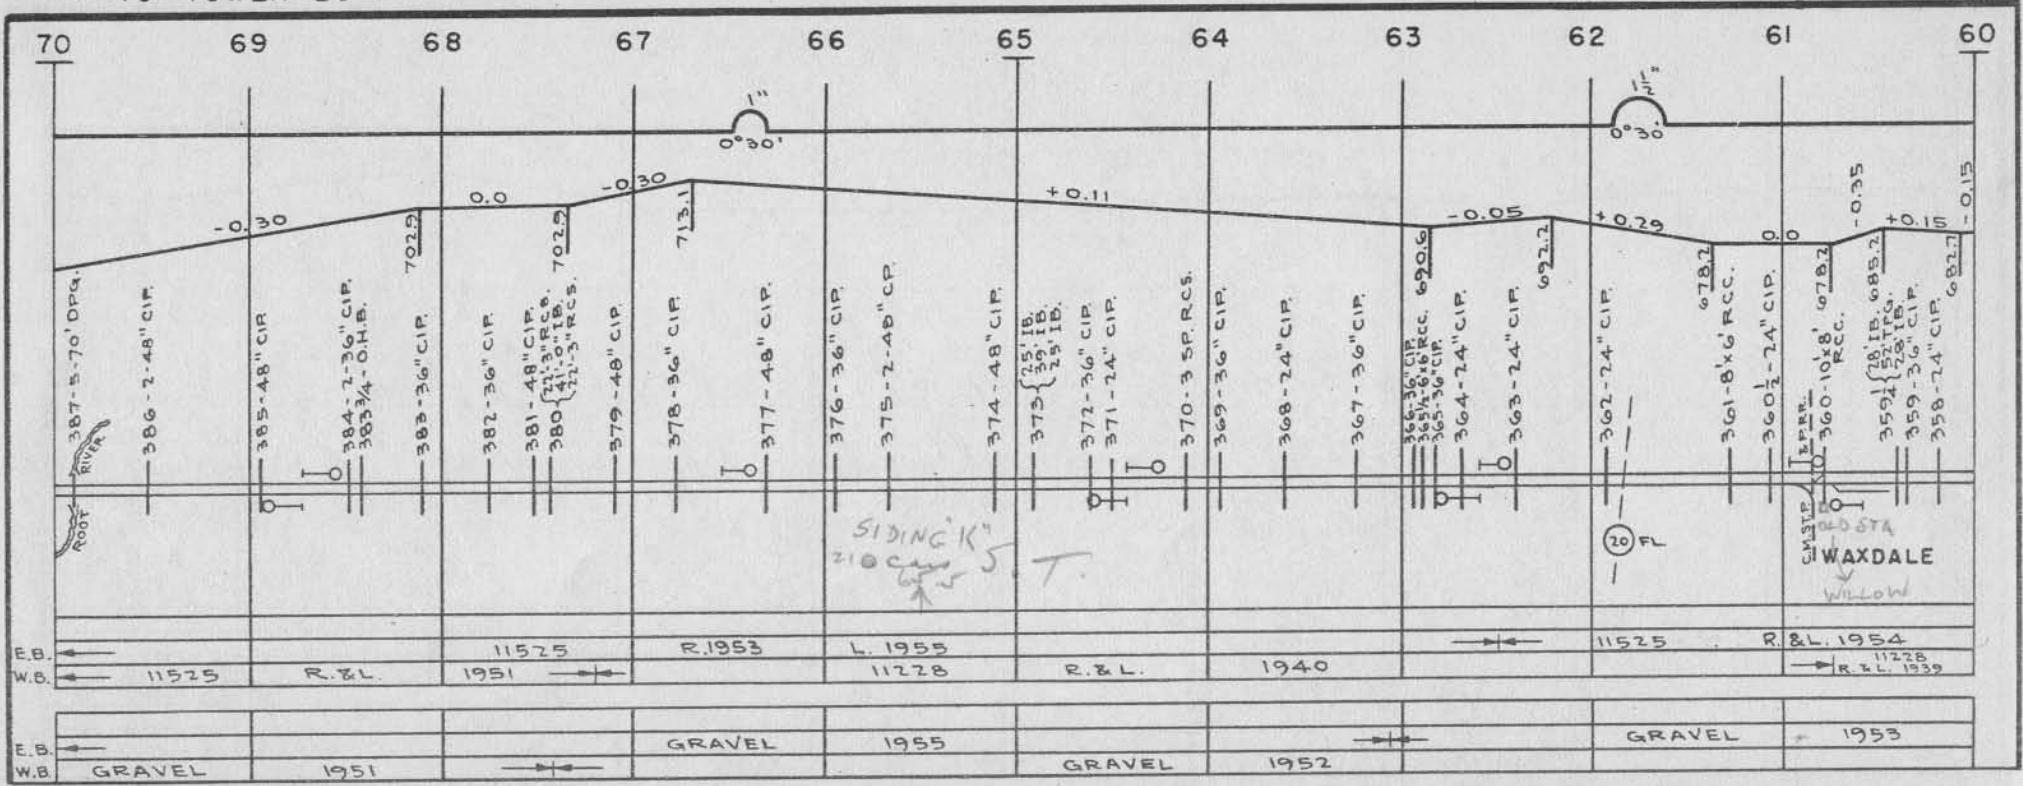 70 69 68 67 66 65 64 63 62 61 60
1" 1½"
0°30' 0°30'
-0.30 0.0 -0.30 +0.11 -0.05 +0.29 0.0 -0.35 +0.15 -0.15
702.9 702.9 713.1 690.6 692.2 678.2 678.2 685.2 682.7
387-5-70' DPG.
386-2-48" CIP.
385-48" CIP.
384-2-36" CIP.
383 3/4-O.H.B.
383-36" CIP.
382-36" CIP.
381-48" CIP.
380 { 22'-3" RCS. 41'-0" IB. 22'-3" RCS.
379-48" CIP.
378-36" CIP.
377-48" CIP.
376-36" CIP.
375-2-48" CP.
374-48" CIP.
373 { 25' IB. 39' IB. 25' IB.
372-36" CIP.
371-24" CIP.
370-3 SP. RCS.
369-36" CIP.
368-24" CIP.
367-36" CIP.
366-36" CIP.
365½-6'x6' RCC.
365-36" CIP.
364-24" CIP.
363-24" CIP.
362-24" CIP.
361-8'x6' RCC.
360½-24" CIP.
360-10'x8' RCC.
359½ { 28' IB. 52' TPG. 28' IB.
359-36" CIP.
358-24" CIP.
ROOT RIVER
C.M.ST.P. & P.R.R.
SIDING "K"
210 Cars S. T.
65.5
20 FL
OLD STA
WAXDALE
WILLOW
E.B. 11525 R.1953 L.1955 11525 R.&L. 1954
W.B. 11525 R.&L. 1951 11228 R.&L. 1940 11228 R.&L. 1939
E.B. GRAVEL 1955 GRAVEL 1953
W.B. GRAVEL 1951 GRAVEL 1952